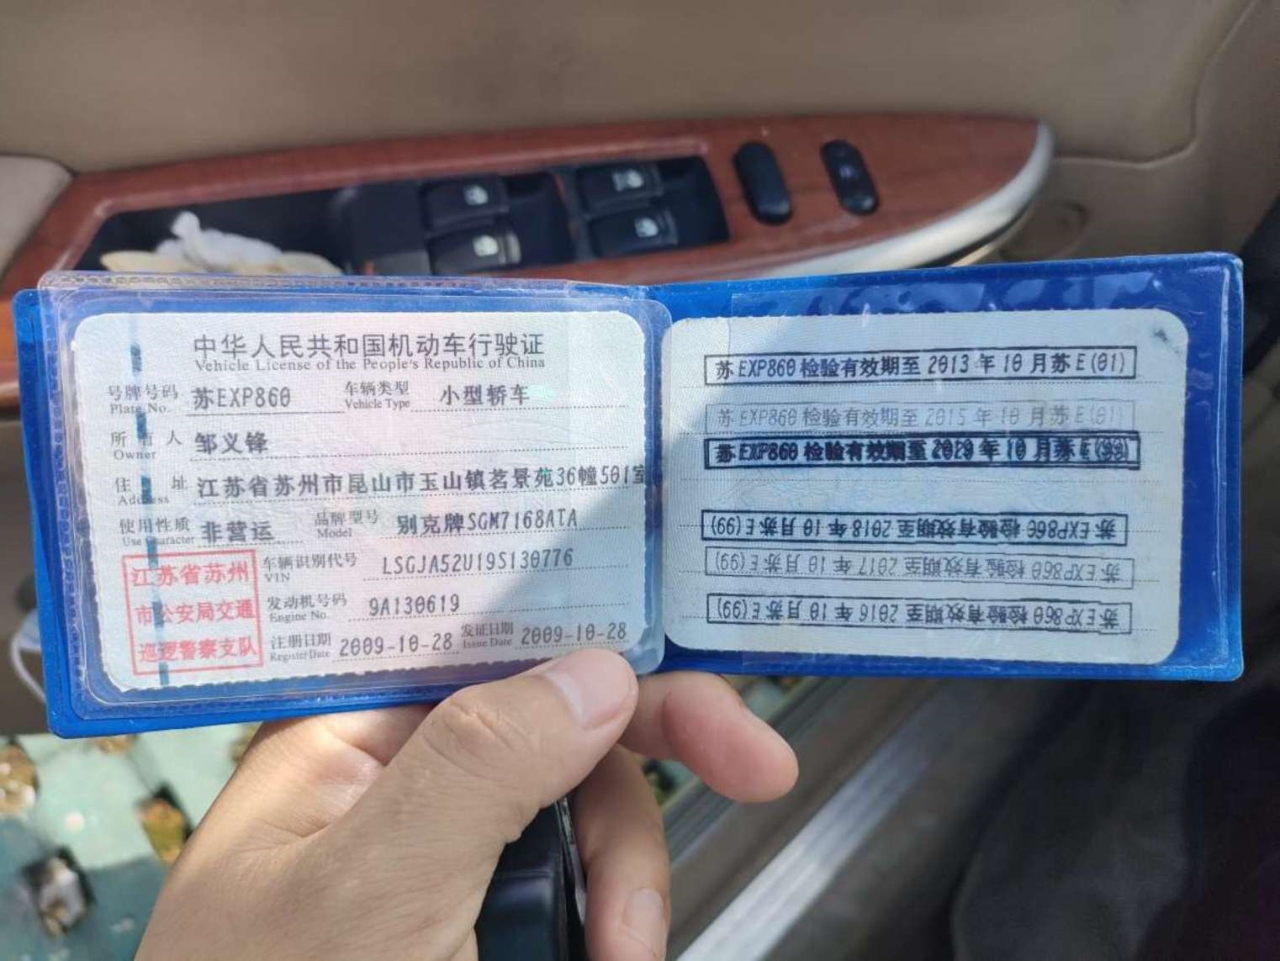 中华人民共和国机动车行驶证
Vehicle License of the People's Republic of China
号牌号码 Plate No. 苏EXP860 车辆类型 Vehicle Type 小型轿车
所有人 Owner 邹义锋
住址 Address 江苏省苏州市昆山市玉山镇茗景苑36幢501室
使用性质 Use Character 非营运 品牌型号 Model 别克牌SGM7168ATA
江苏省苏州
市公安局交通
巡逻警察支队
车辆识别代号 VIN LSGJA52U19S130776
发动机号码 Engine No. 9A130619
注册日期 Register Date 2009-10-28 发证日期 Issue Date 2009-10-28
苏EXP860检验有效期至2013年10月苏E(01)
苏EXP860检验有效期至2015年10月苏E(01)
苏EXP860检验有效期至 年10月苏E(99)
苏EXP860检验有效期至2018年10月苏E(99)
苏EXP860检验有效期至2017年10月苏E(99)
苏EXP860检验有效期至2016年10月苏E(99)